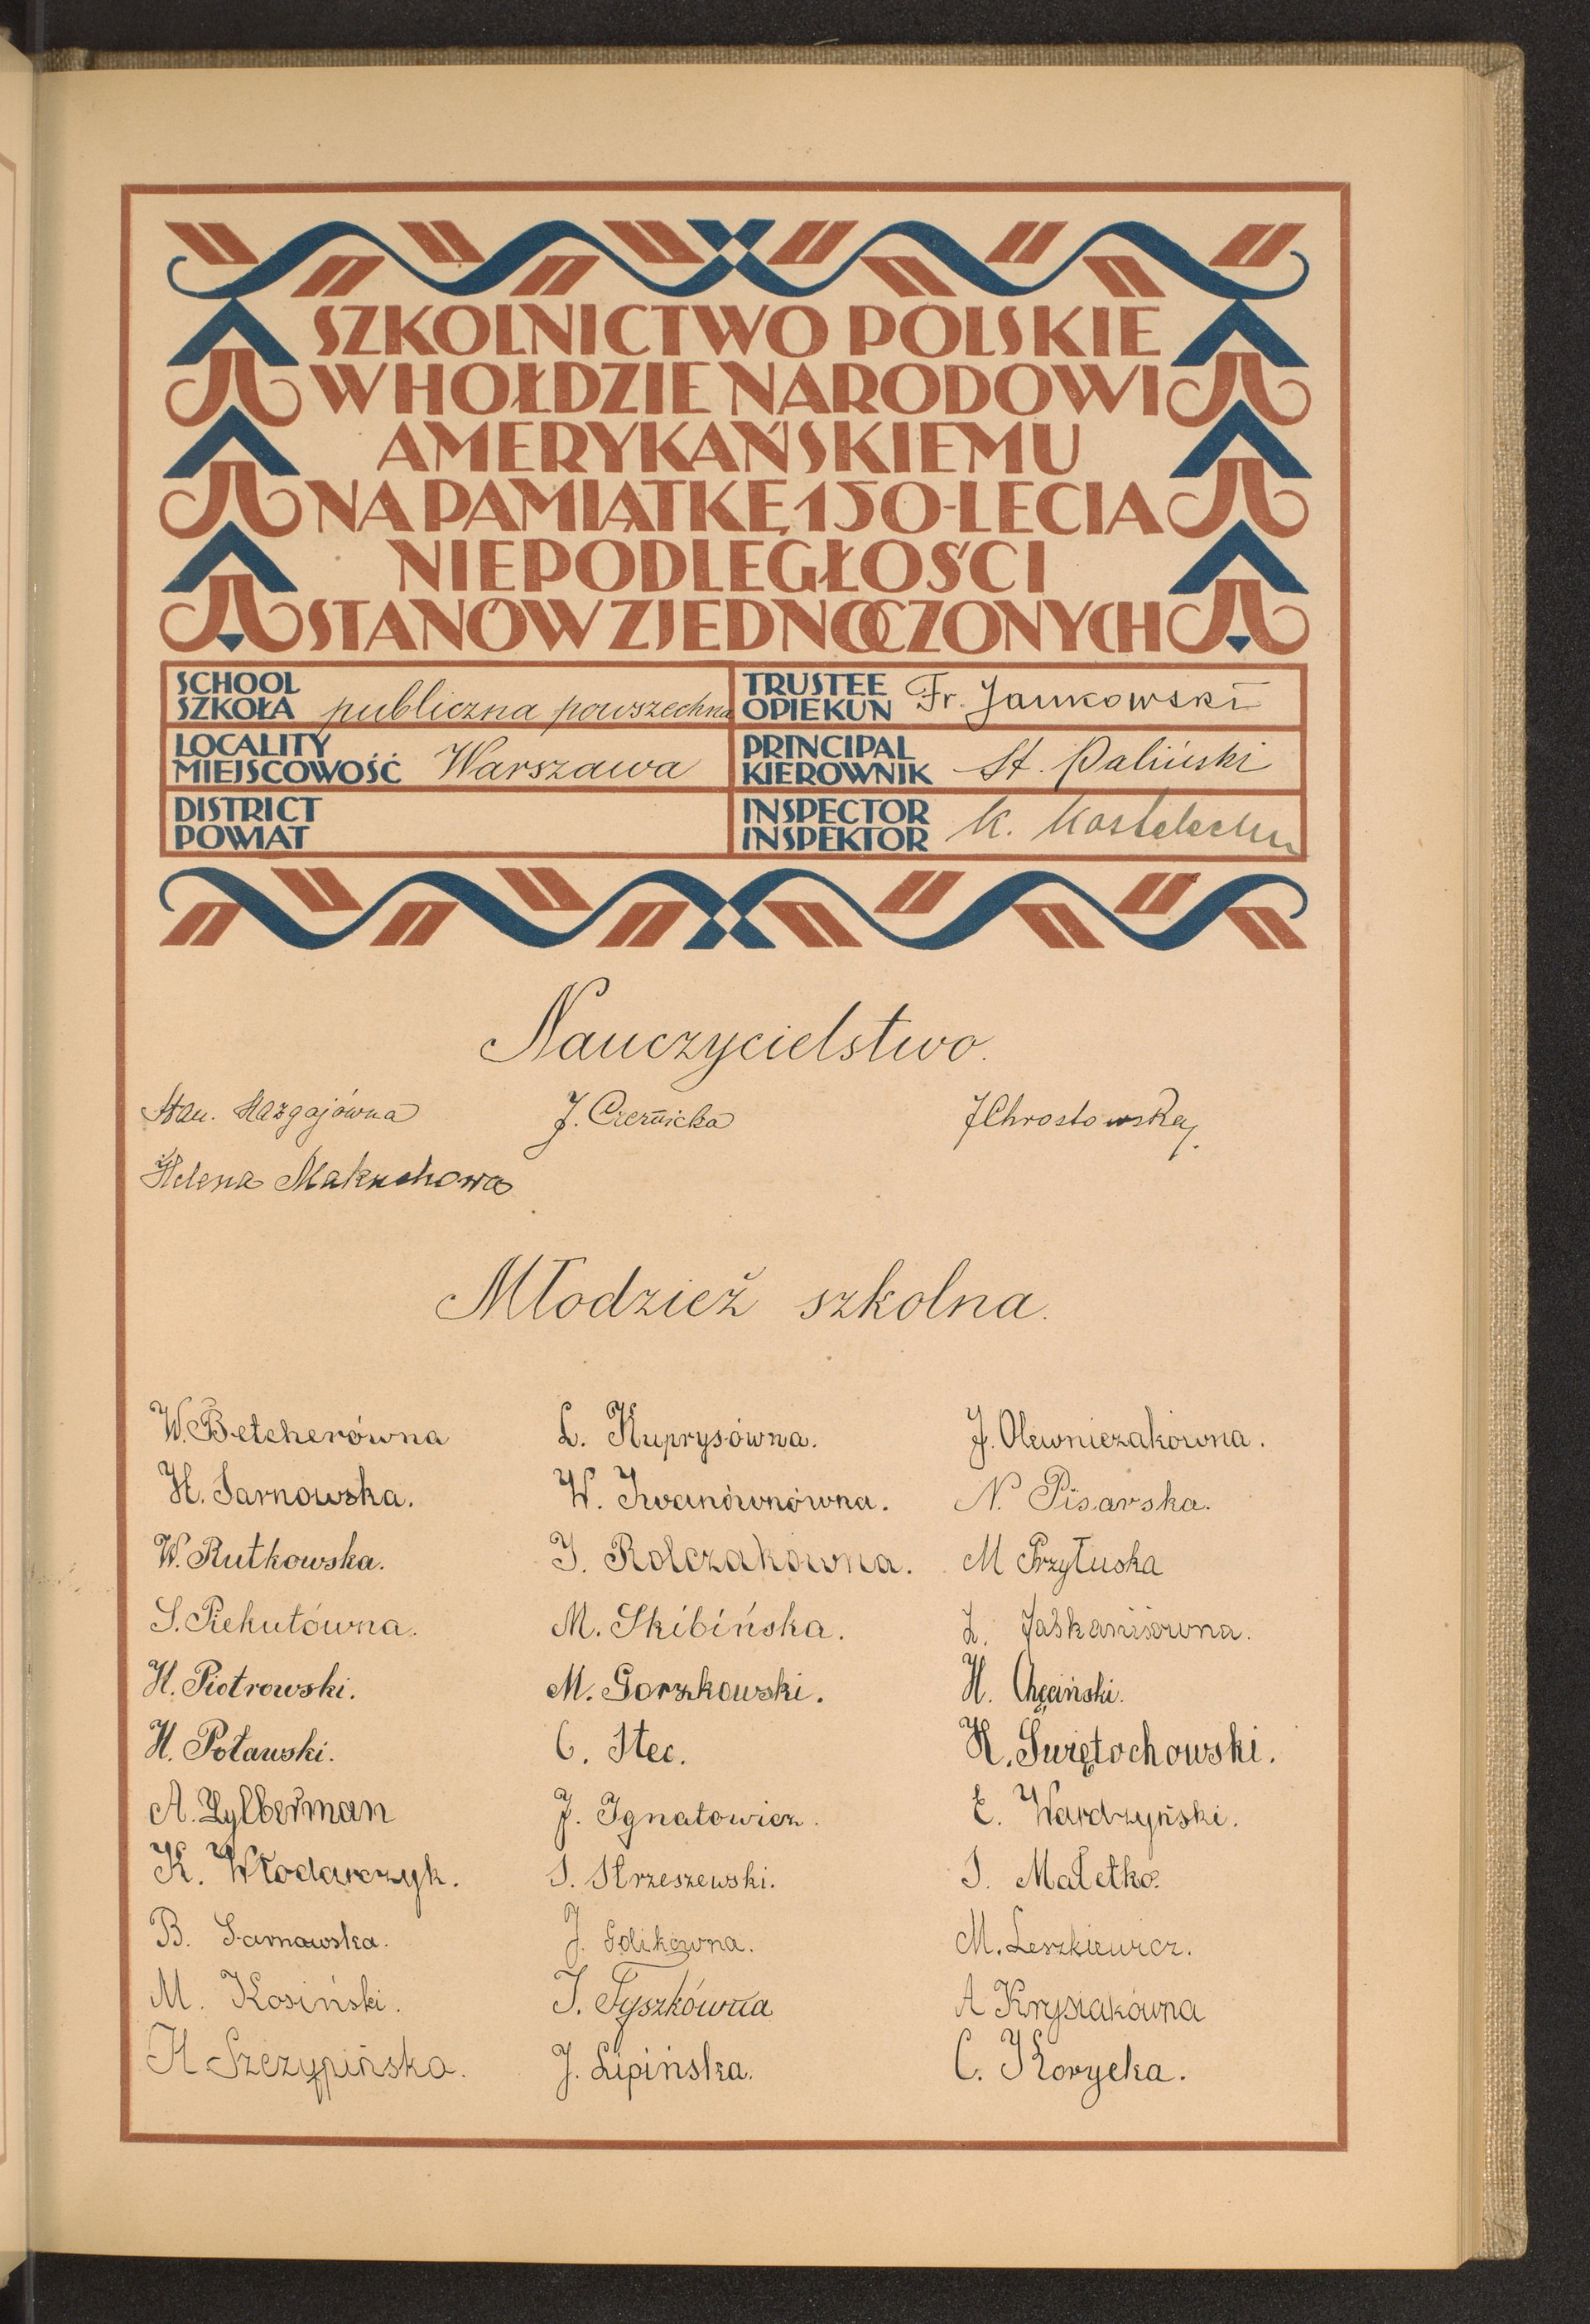 SZKOLNICTWO POLSKIE
W HOŁDZIE NARODOWI
AMERYKAŃSKIEMU
NA PAMIĄTKĘ 150-LECIA
NIEPODLEGŁOŚCI
STANÓW ZJEDNOCZONYCH
SCHOOL
SZKOŁA publiczna powszechna
TRUSTEE
OPIEKUN Fr. Jankowski
LOCALITY
MIEJSCOWOŚĆ Warszawa
PRINCIPAL
KIEROWNIK St. Paliński
DISTRICT
POWIAT
INSPECTOR
INSPEKTOR K.
Nauczycielstwo.
Stan. Mazgajówna J. Czernicka J Chrostowska
Helena Makuchowa
Młodzież szkolna.
W. Betcherówna L. Kuprysówna. J. Olewniczakówna.
H. Sarnowska. W. Iwanównówna. N. Pisarska.
W. Rutkowska. I. Rolczakówna. M Przyłuska
S. Piekutówna. M. Skibińska. L. Jaskanisówna.
H. Piotrowski. M. Gorzkowski. H. Chęciński.
H. Potawski. C. Stec. H. Świętochowski.
A. Zylberman J. Ignatowicz. E. Wardzyński.
K. Włodarczyk. S. Strzeszewski. S. Małetko.
B. Sarnowska. J. Golikówna. M. Leszkiewicz.
M. Kosiński. I. Tyszkówna A Krysiakówna
H Szczypińska. J. Lipińska. C. Korycka.